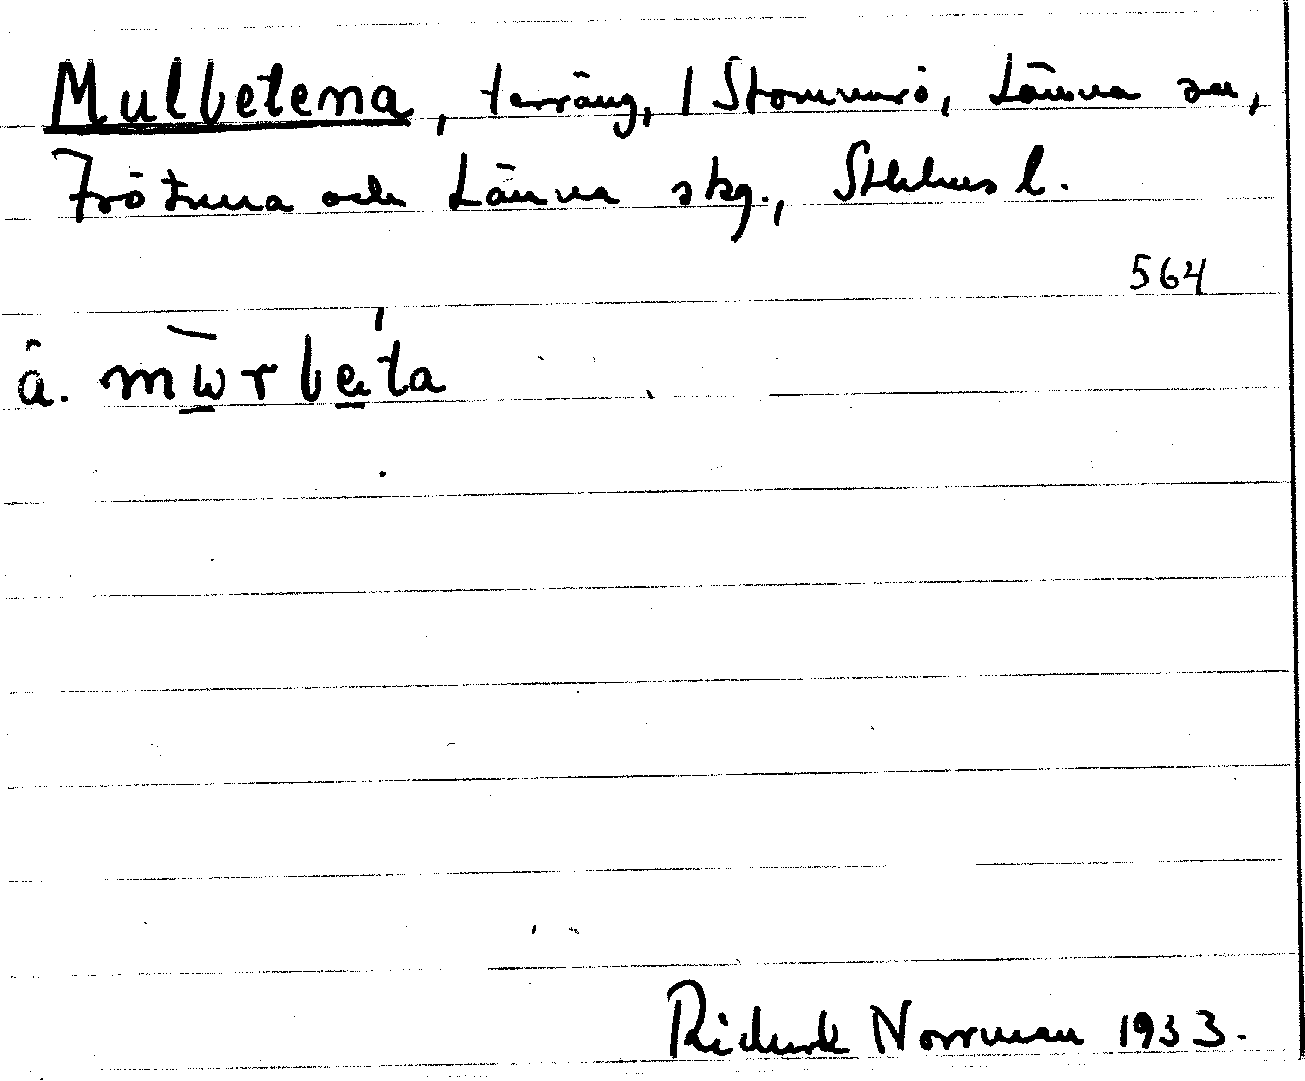 Mulbetena, terräng, 1 Stommarö, Länna sn,
Frötuna och Länna skg., Sthlms l.
564
å. mωrbeta
Richard Norrman 1933.